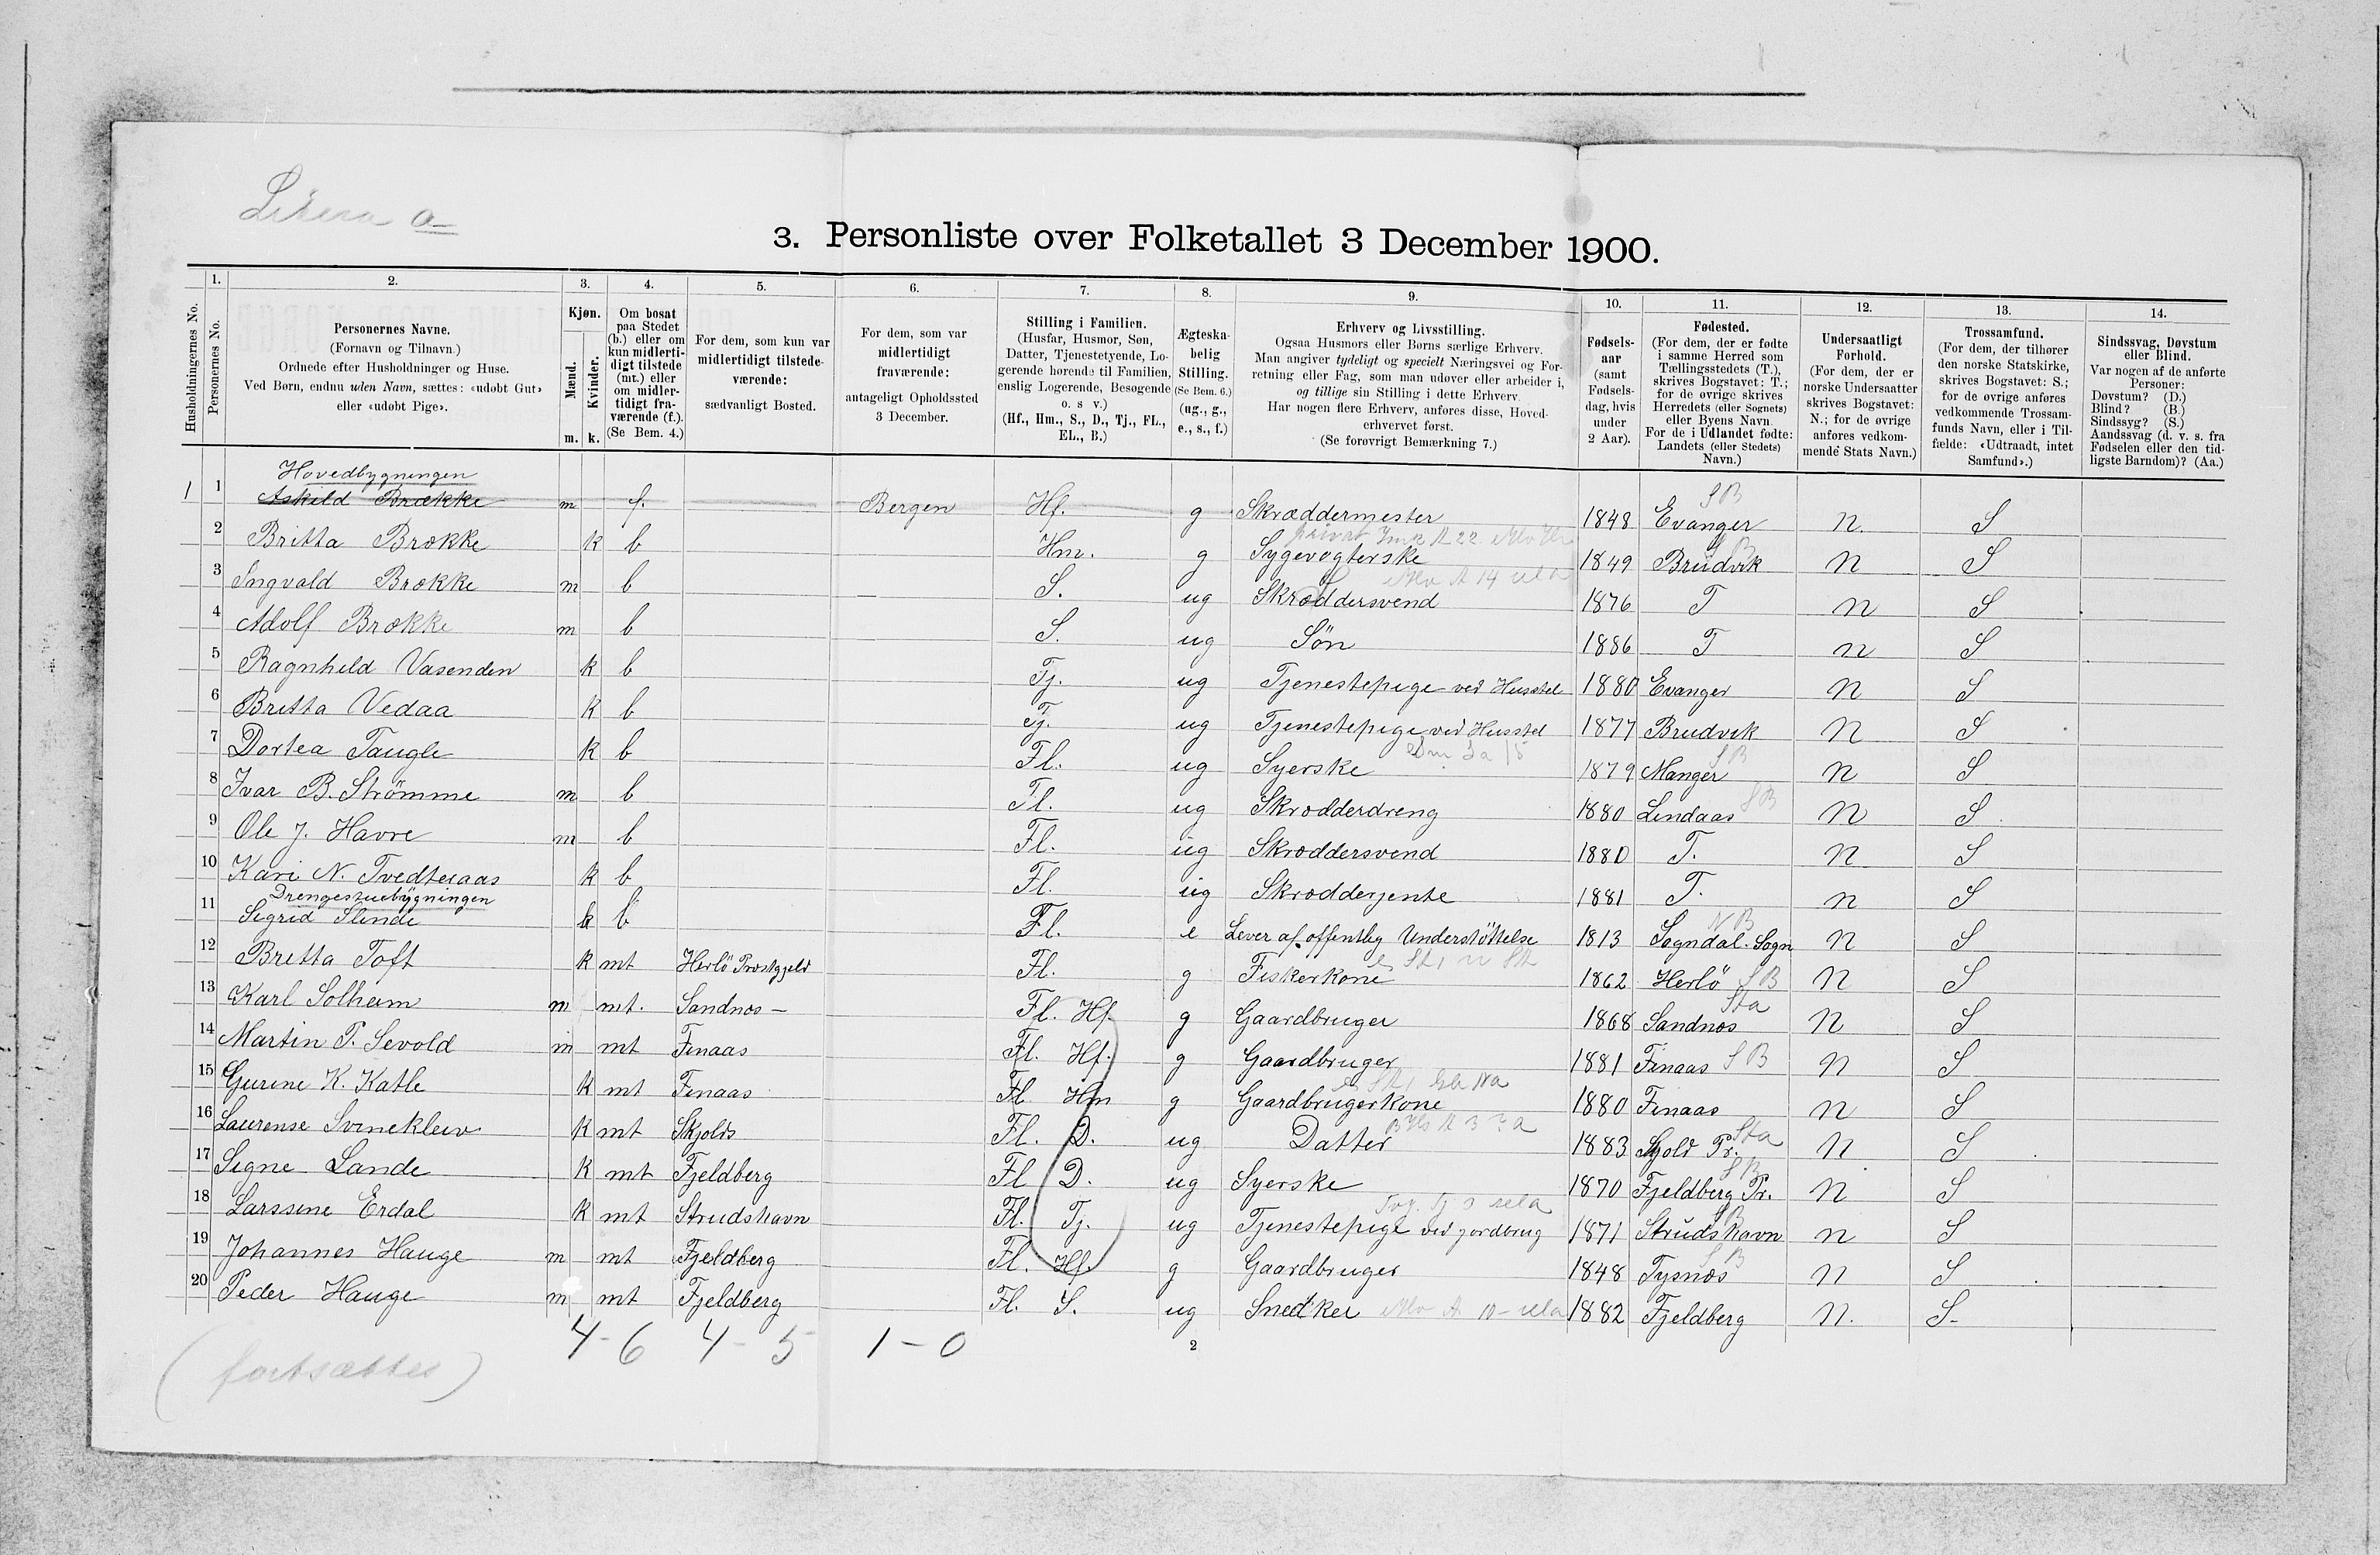 Litera a
3. Personliste over Folketallet 3 December 1900.
Husholdningernes No.
1. Personernes No.
2. Personernes Navne. (Fornavn og Tilnavn.) Ordnede efter Husholdninger og Huse. Ved Børn, endnu uden Navn, sættes: «udøbt Gut» eller «udøbt Pige».
3. Kjøn. Mænd. m. Kvinder. k.
4. Om bosat paa Stedet (b.) eller om kun midlertidigt tilstede (mt.) eller om midlertidigt fraværende (f.). (Se Bem. 4.)
5. For dem, som kun var midlertidigt tilstedeværende: sædvanligt Bosted.
6. For dem, som var midlertidigt fraværende: antageligt Opholdssted 3 December.
7. Stilling i Familien. (Husfar, Husmor, Søn, Datter, Tjenestetyende, Logerende hørende til Familien, enslig Logerende, Besøgende o. s v.) (Hf., Hm., S., D., Tj., FL., EL., B.)
8. Ægteskabelig Stilling. (Se Bem. 6.) (ug., g., e., s., f.)
9. Erhverv og Livsstilling. Ogsaa Husmors eller Børns særlige Erhverv. Man angiver tydeligt og specielt Næringsvei og Forretning eller Fag, som man udøver eller arbeider i, og tillige sin Stilling i dette Erhverv. Har nogen flere Erhverv, anføres disse, Hovederhvervet først. (Se forøvrigt Bemærkning 7.)
10. Fødselsaar (samt Fødselsdag, hvis under 2 Aar).
11. Fødested. (For dem, der er fødte i samme Herred som Tællingsstedets (T.), skrives Bogstavet: T.; for de øvrige skrives Herredets (eller Sognets) eller Byens Navn. For de i Udlandet fødte: Landets (eller Stedets) Navn.)
12. Undersaatligt Forhold. (For dem, der er norske Undersaatter skrives Bogstavet: N.; for de øvrige anføres vedkommende Stats Navn.)
13. Trossamfund. (For dem, der tilhører den norske Statskirke, skrives Bogstavet: S.; for de øvrige anføres vedkommende Trossamfunds Navn, eller i Tilfælde: «Udtraadt, intet Samfund».)
14. Sindssvag, Døvstum eller Blind. Var nogen af de anførte Personer: Døvstum? (D.) Blind? (B.) Sindssyg? (S.) Aandssvag (d. v. s. fra Fødselen eller den tidligste Barndom)? (Aa.)
Hovedbygningen
1 1 Askild Brække m f. Bergen Hf. g Skræddermester 1848 Evanger S B n. S
2 Britta Brække k b Hm. g Sygevogterske 1849 Brudvik S B n S
3 Ingvald Brække m b S. ug Skræddersvend 1876 T n S
4 Adolf Brække m b S. ug Søn 1886 T n S
5 Ragnhild Vasenden k b Tj. ug Tjenestepige ved Husstel 1880 Evanger N S
6 Britta Vedaa k b Tj. ug Tjenestepige ved Husstel 1877 Brudvik N S
7 Dortea Taugle k b Fl. ug Syerske 1879 Manger S B n S
8 Ivar B. Strömme m b Fl. ug Skrædderdreng 1880 Lindaas S B N S
9 Ole J. Havre m b Fl. ug Skræddersvend 1880 T. N S
10 Kari N. Tvedteraas k b Fl. ug Skrædderjente 1881 T. n S
Drengestuebygningen
11 Sigrid Slinde k b Fl. e Lever af offentlig Understöttelse 1813 Sogndal. Sogn N B N S
12 Britta Toft k mt Herlö Præstgjeld Fl. g Fiskerkone 1862 Herlö S B N S
13 Karl Solheim m mt. Sandnæs – Fl. Hf. g Gaardbruger 1868 Sandnæs Sta N S
14 Martin P. Sevold m mt Finaas Fl. Hf. g Gaardbruger 1881 Finaas S B N S
15 Gurine K. Katle k mt Finaas Fl Hm g Gaardbrugerkone 1880 Finaas N S
16 Laurense Svinekleiv k mt Skjolds Fl. D. ug Datter 1883 Skjold Pr. Sta N S
17 Signe Lande k mt Fjeldberg Fl D. ug Syerske 1870 Fjeldberg Pr. S B N S
18 Larssine Erdal k mt Strudshavn Fl. Tj. ug Tjenestepige ved jordbrug 1871 Strudshavn S B N S
19 Johannes Hauge m mt Fjeldberg Fl. Hf. g Gaardbruger 1848 Tysnæs S B N S
20 Peder Hauge m mt Fjeldberg Fl. S. ug Snedker 1882 Fjeldberg N. S.
4 - 6 4 - 5 1 - 0
2
(fortsættes)